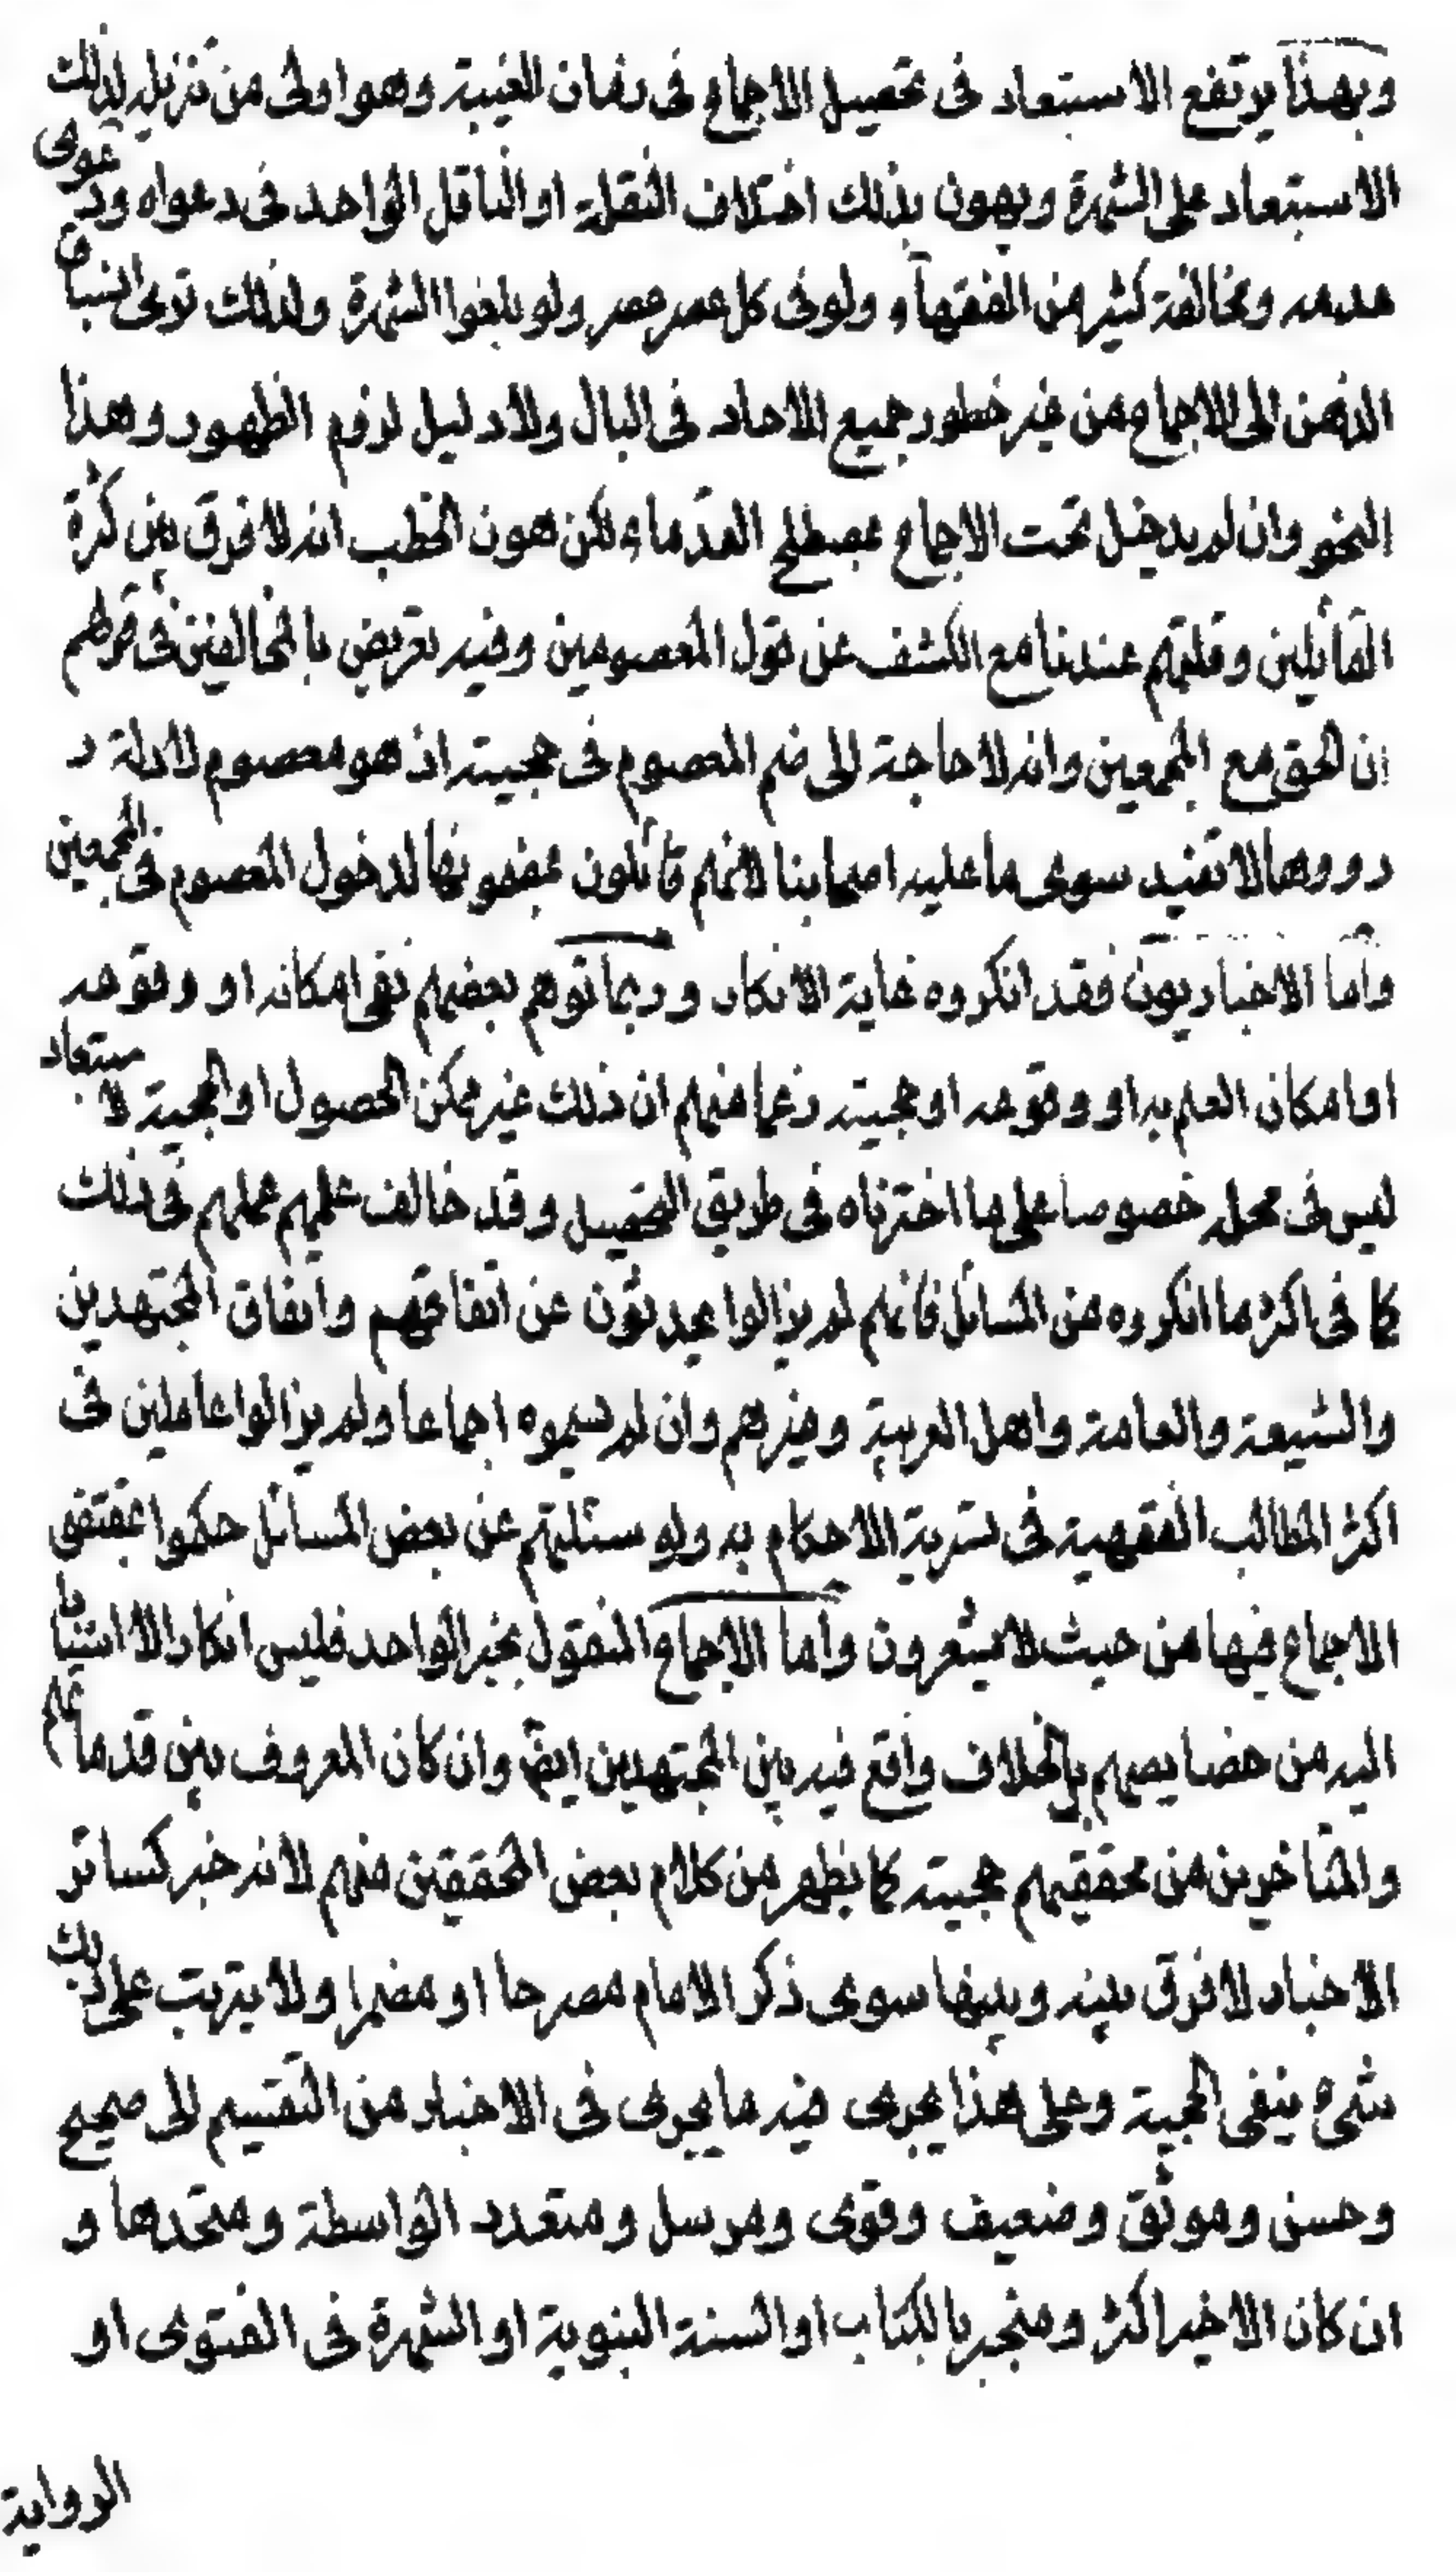 وبهذا يرتفع الاستبعاد فى تحصيل الاجماع فى زمان الغيبة وهو اولى من تنزيله لذلك
الاستبعاد على الشهرة ويهون بذلك اختلاف النقلة او الناقل الواحد فى دعواه ودعوى
عدمه ومخالفة كثير من الفقهاء ولو فى كل عصر عصر ولو بلغوا الشهرة ولذلك ترى انسباق
الذهن الى الاجماع من غير خطور جميع الاحاد فى البال ولا دليل لزوم الظهور وهذا
النحو وان لم يدخل تحت الاجماع بمصطلح القدماء لكن هون الخطب انه لا فرق بين كثرة
القائلين وقلتهم عندنا مع الكشف عن قول المعصومين وفيه تعريض بالمخالفين فى قولهم
ان الحق مع المجمعين وانه لا حاجة الى ضم المعصوم فى حجيته اذ هو معصوم لادلة د
رووها لا تفيد سوى ما عليه اصحابنا لانهم قائلون بمضمونها لدخول المعصوم فى المجمعين
واما الاخباريون فقد انكروه غاية الانكار وربما توهم بعضهم نفى امكانه او وقوعه
او امكان العلم به او وقوعه او حجيته زعما منهم ان ذلك غير ممكن الحصول او الحجية لاستبعاد
ليس فى محله خصوصا على ما اخترناه فى طريق التحصيل وقد خالف علمهم عملهم فى ذلك
كما فى اكثر ما انكروه من المسائل فانهم لم يزالوا يحدثون عن اتفاقهم واتفاق المجتهدين
والشيعة والعامة واهل العربية وغيرهم وان لم يسموه اجماعا ولم يزالوا عاملين فى
اكثر المطالب الفقهية فى تسرية الاحكام به ولو سئلتهم عن بعض المسائل حكموا بمقتضى
الاجماع فيها من حيث لا يشعرون واما الاجماع المنقول بخبر الواحد فليس انكار الاستناد
اليه من خصايصهم بل الخلاف واقع فيه بين المجتهدين ايضا وان كان المعروف بين قدمائهم
والمتاخرين من محققيهم حجيته كما يظهر من كلام بعض المحققين منهم لانه خبر كسائر
الاخبار لا فرق بينه وبينها سوى ذكر الامام مصرحا او مضمرا ولا يترتب على ذلك
شىء ينفى الحجية وعلى هذا يجرى فيه ما يجرى فى الاخبار من التقسيم الى صحيح
وحسن وموثق وضعيف وقوى ومرسل ومتعدد الواسطة ومتحدها و
ان كان الاخير اكثر ومنجبر بالكتاب او السنة النبوية او الشهرة فى الفتوى او
الرواية